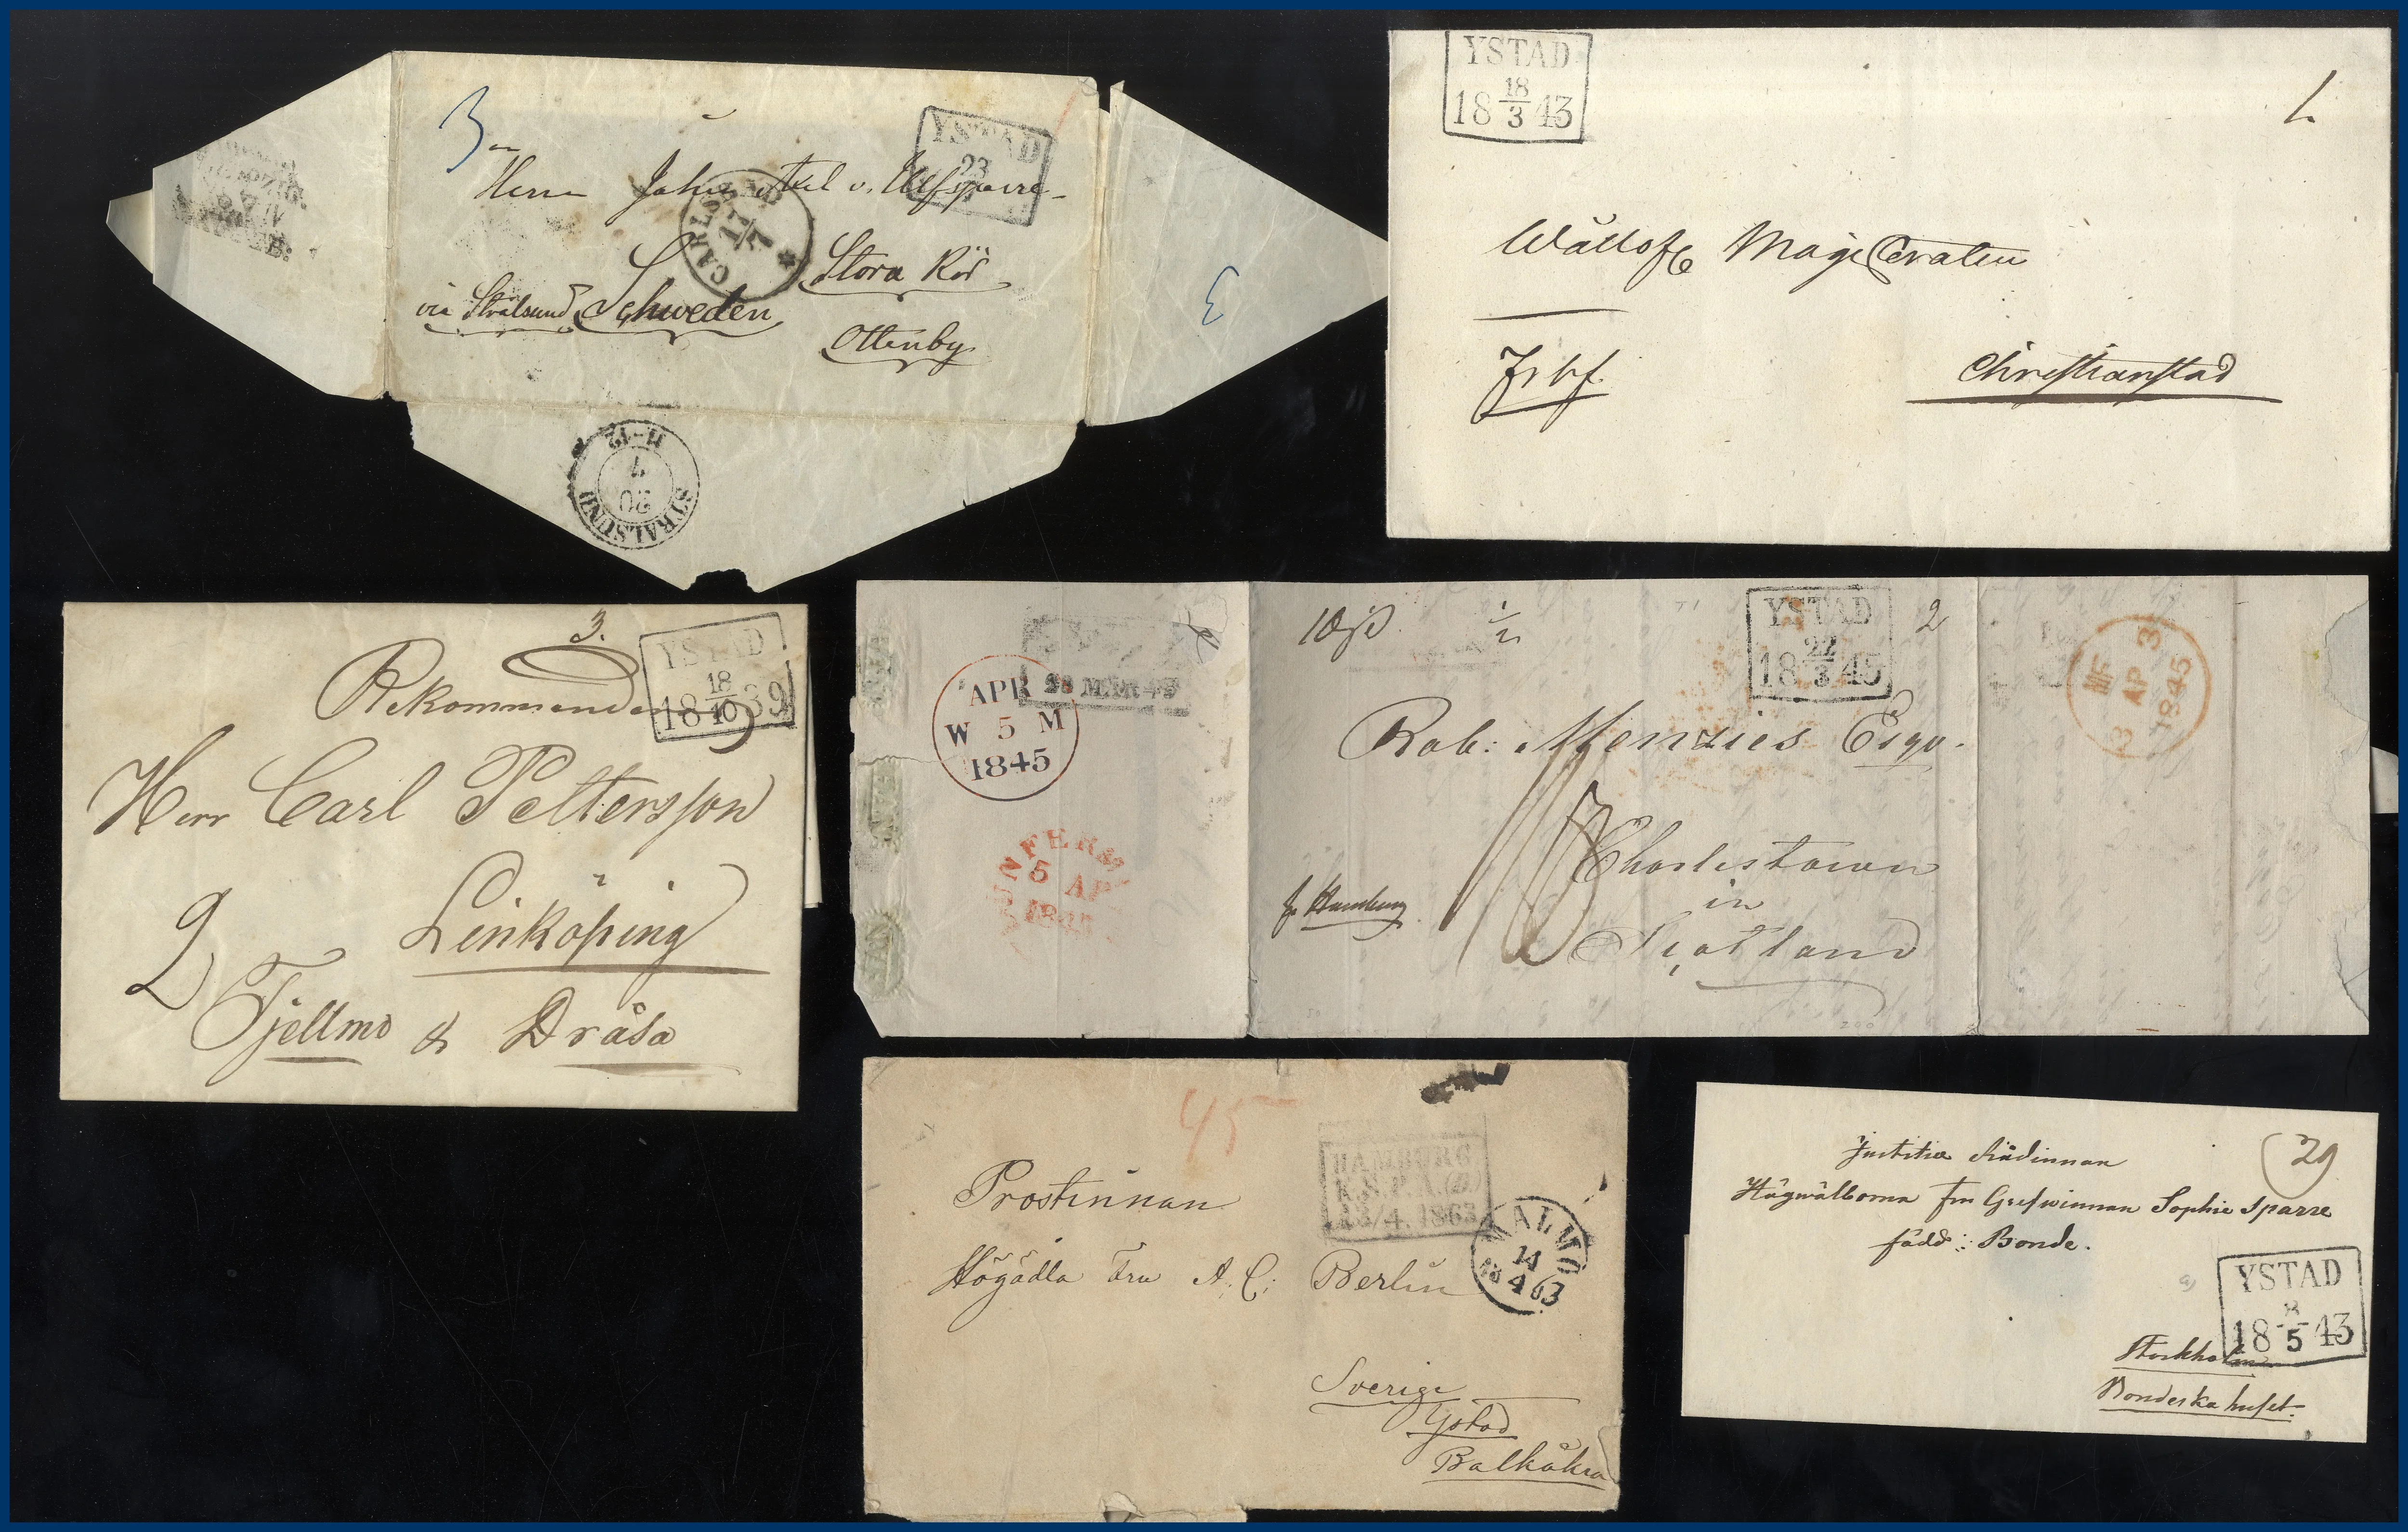 3
YSTAD
23
Herr Johan Axel v. Ulfsparre
CARLSBAD
17/7
Stora Rör
via Stralsund Schweden
Ottenby
3
STRALSUND
20
7
11-12
YSTAD
18 18/3 43
1.
Christianstad
3.
YSTAD
18 18/10 39
Rekommenderas
Herr Carl Pettersson
Linköping
2
Tjellmo & Dråsa
APR
W 5 M
1845
5 AP
YSTAD
18 22/3 45
2
Rob: Menzies Esqr.
Charlestown
in
Scotland
p. Hamburg
3 AP 3
1845
45
HAMBURG
K.S.P.A.(D.)
13/4. 1863
MALMÖ
14
4 63
Prostinnan
Högädla Fru A. C. Berlin
Sverige
Ystad
Balkåkra
29
Justitiæ Rådinnan
Högwälborna Fru Grefwinnan Sophie Sparre
född: Bonde.
YSTAD
18 8/5 43
Stockholm
Bondeska huset.